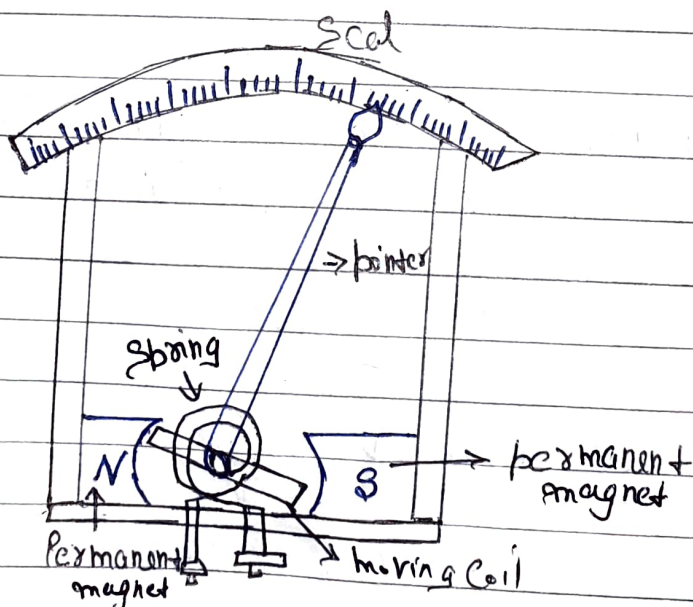 Scal
→ pointer
Spring
N
S
permanent
magnet
Permanent
magnet
moving Coil